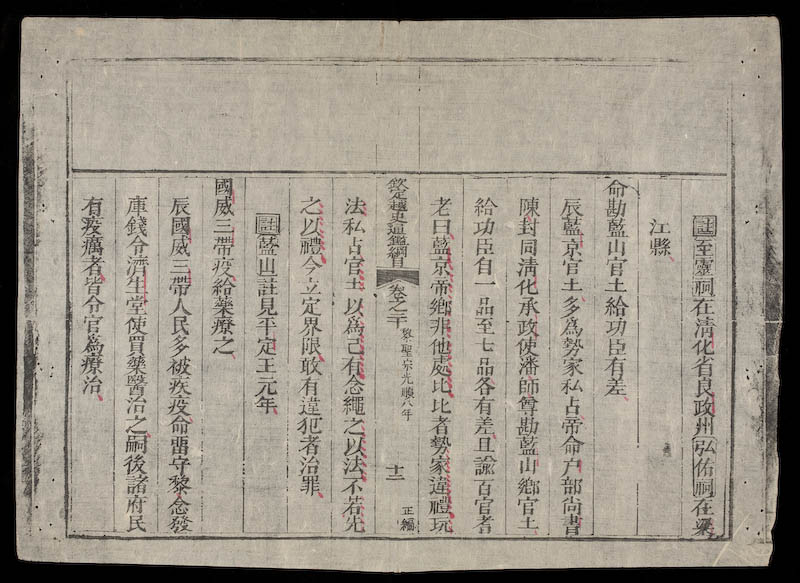 註至靈祠在清化省良政州弘佑祠在梁
江縣
命勘藍山官土給功臣有差
辰藍京官土多爲勢家私占帝命户部尚書
陳封同清化承政使潘師尊勘藍山鄉官土
給功臣自一品至七品各有差且諭百官耆
老曰藍京帝鄉非他處比比者勢家違禮玩
欽定越史通鑑綱目 卷之二十 黎聖宗光順八年 十二 正編
法私占官土以為己有念繩之以法不若先
之以禮今立定界限敢有違犯者治罪
註藍山註見平定王元年
國威三帶疫給藥療之
辰國威三帶人民多被疾疫命留守黎念發
庫錢令濟生堂使買藥醫治之嗣後諸府民
有疫癘者皆令官為療治